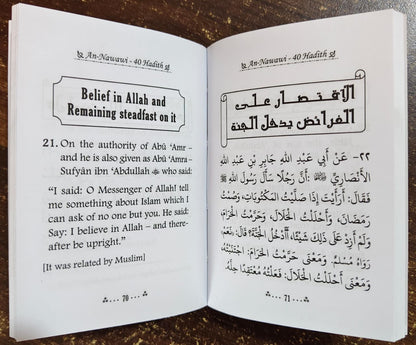 An-Nawawi - 40 Hadith
Belief in Allah and
Remaining steadfast on it
21. On the authority of Abū ‘Amr –
and he is also given as Abū ‘Amra –
Sufyān ibn ‘Abdullah ؓ who said:
“I said: O Messenger of Allah! tell
me something about Islam which I
can ask of no one but you. He said:
Say: I believe in Allah – and there-
after be upright.”
[It was related by Muslim]
... 70 ...
An-Nawawi - 40 Hadith
الاقتصار على
الفرائض يدخل الجنة
٢٢- عَنْ أَبِي عَبْدِ اللهِ جَابِرِ بْنِ عَبْدِ اللهِ
الْأَنْصَارِيِّ: أَنَّ رَجُلًا سَأَلَ رَسُولَ اللهِ ﷺ
فَقَالَ: أَرَأَيْتَ إِذَا صَلَّيْتُ الْمَكْتُوبَاتِ، وَصُمْتُ
رَمَضَانَ، وَأَحْلَلْتُ الْحَلَالَ، وَحَرَّمْتُ الْحَرَامَ،
وَلَمْ أَزِدْ عَلَى ذَلِكَ شَيْئًا، أَأَدْخُلُ الْجَنَّةَ؟ قَالَ: «نَعَمْ»
رَوَاهُ مُسْلِمٌ. وَمَعْنَى حَرَّمْتُ الْحَرَامَ: اجْتَنَبْتُهُ
وَمَعْنَى أَحْلَلْتُ الْحَلَالَ: فَعَلْتُهُ مُعْتَقِدًا حِلَّهُ
... 71 ...